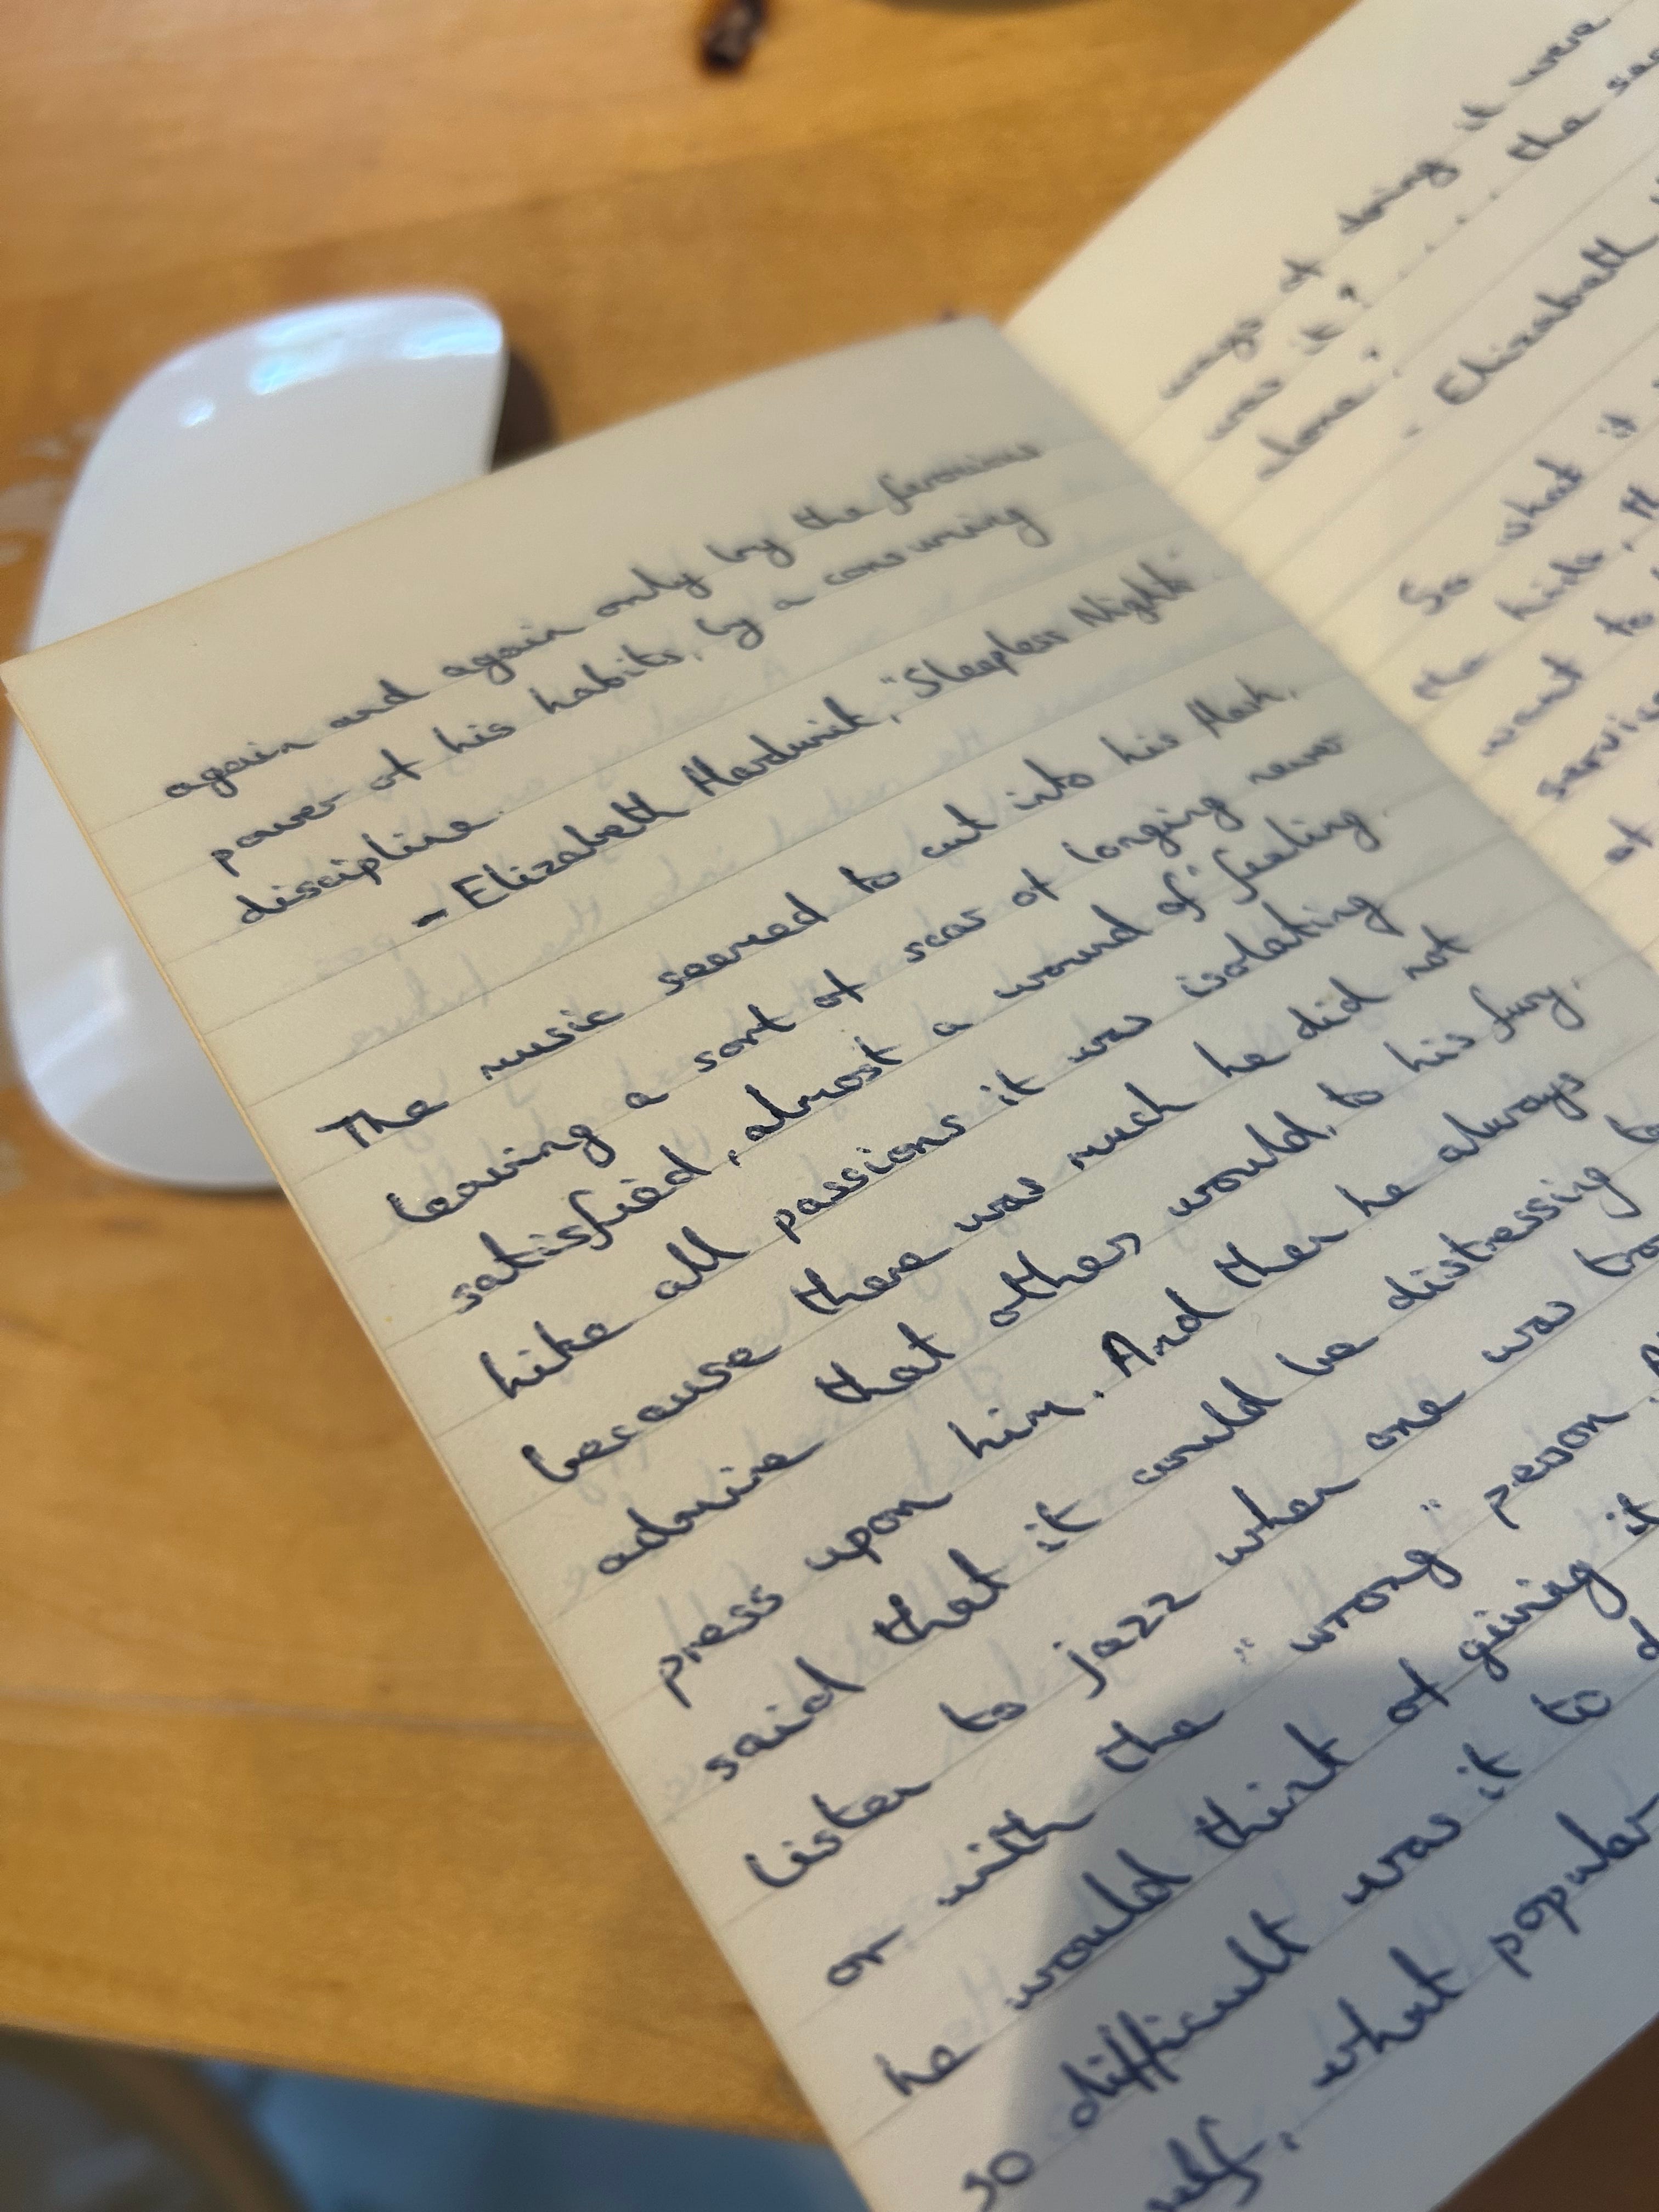 again and again only by the ferocious
power of his habits, by a consuming
discipline.
- Elizabeth Hardwick, "Sleepless Nights"
The music seemed to cut into his flesh,
leaving a sort of scar of longing never
satisfied, almost a wound of feeling.
Like all passions it was isolating
because there was much he did not
admire that others would, to his fury,
press upon him. And then he always
said that it could be distressing to
listen to jazz when one was
or with the "wrong" person.
he would think of giving it
so difficult was it to
self, what popular
ways of doing it were
was it? .... the
done?
- Elizabeth
So what if
the kids,
want to
of